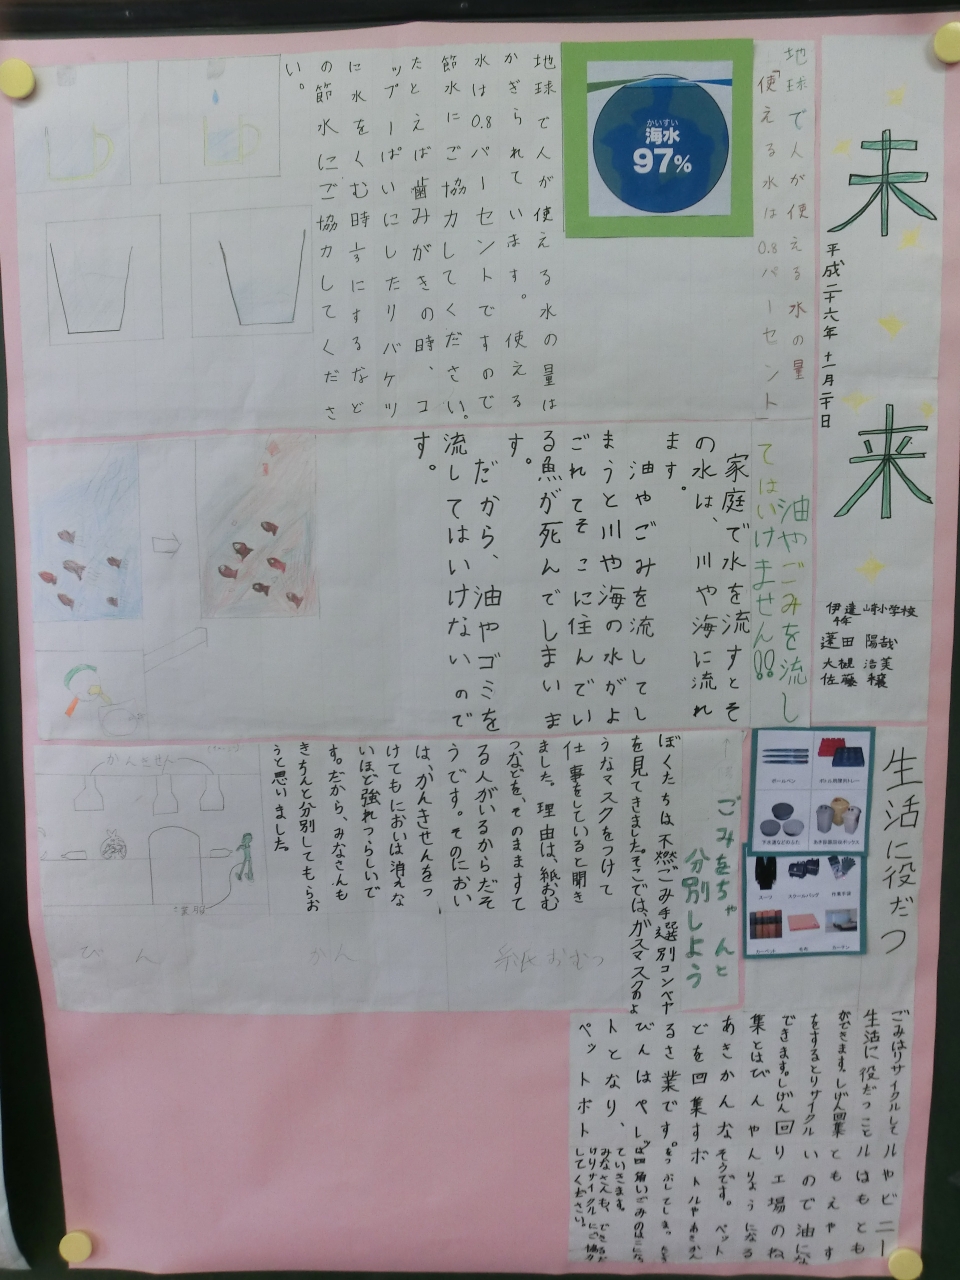 未来
平成二十六年十一月二十日
蓬田 陽哉
佐藤 穣
地球で人が使える水の量
「使える水は0.8パーセント」
海水
かいすい
97%
地球で人が使える水の量は
かぎられています。使える
水は0.8パーセントですので
節水にご協力してください。
たとえば歯みがきの時、コ
ップ一ぱいにしたりバケツ
に水をくむ時 にするなど
の節水にご協力してくださ
い。
油やごみを流し
てはいけません!!
家庭で水を流すとそ
の水は、川や海に流れ
ます。
油やごみを流してし
まうと川や海の水がよ
ごれてそこに住んでい
る魚が死んでしまいま
す。
だから、油やゴミを
流してはいけないので
す。
ごみをちゃんと
分別しよう
ぼくたちは不燃ごみ手選別コンベヤ
を見てきました。そこでは、ガスマスクのよ
うなマスクをつけて
仕事をしていると聞き
ました。理由は、紙おむ
つなどを、そのまますて
る人がいるからだそ
うです。そのにおい
は、かんきせんをつ
けてもにおいは消えな
いほど強れつらしいで
す。だから、みなさんも
きちんと分別してもらお
うと思いました。
かんきせん
びん
かん
紙おむつ
生活に役だつ
ボールペン
スーツ
スクールバッグ
作業手袋
カーペット
カーテン
ごみはリサイクルして
生活に役だつこと
ができます。しげん回集
をするとリサイクル
できます。しげん回
集とはびんや
あきかんな
どを回集す
るさ業です。
びんはペレッ
トとなり、
ペットボト
ルやビニー
ルはもとも
ともえやす
いので油にな
り工場のね
んりょうになる
そうです。ペット
ボトルやあきかん
ていきます。
みなさんも、できるだ
けリサイクルにご協力
してください。